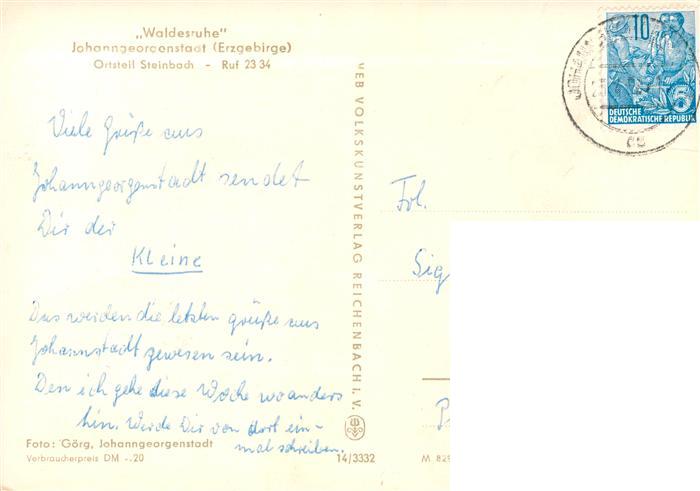 „Waldesruhe"
Johanngeorgenstadt (Erzgebirge)
Ortsteil Steinbach - Ruf 23 34
Viele Grüße aus
Johanngeorgenstadt sendet
Dir der
Kleine
Das werden die letzten grüße aus
Johannstadt gewesen sein.
Den ich gehe diese Woche wo anders
hin. Werde Dir von dort ein-
mal schreiben.
Foto: Görg, Johanngeorgenstadt
Verbraucherpreis DM -.20
VEB VOLKSKUNSTVERLAG REICHENBACH i. V.
14/3332
10
DEUTSCHE
DEMOKRATISCHE REPUBLIK
Frl.
Sig
M 829